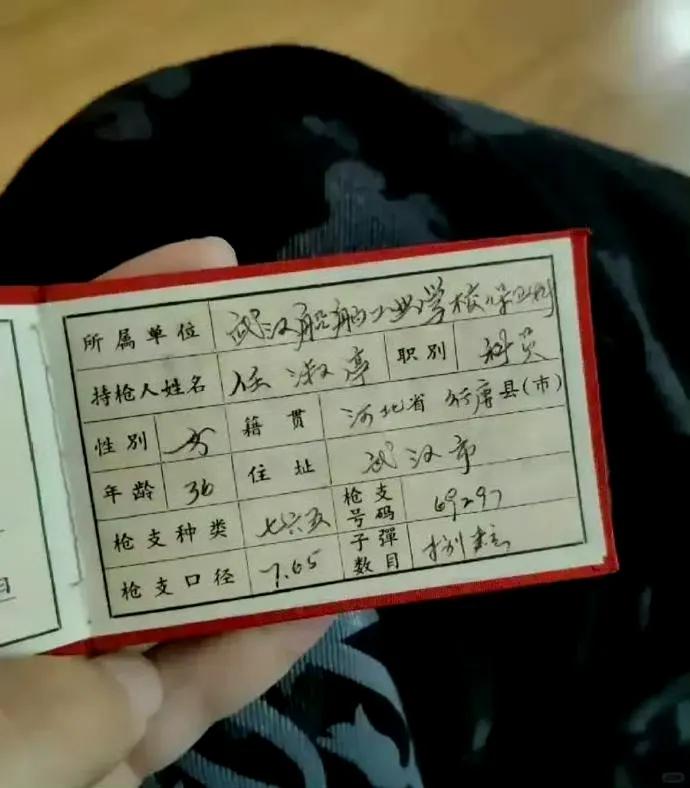 所属单位 武汉船舶工业学校保卫科
持枪人姓名 任淑亭 职别 科员
性别 女 籍贯 河北省行唐县(市)
年龄 36 住址 武汉市
枪支种类 七六五 枪支号码 69297
枪支口径 7.65 子彈数目
目